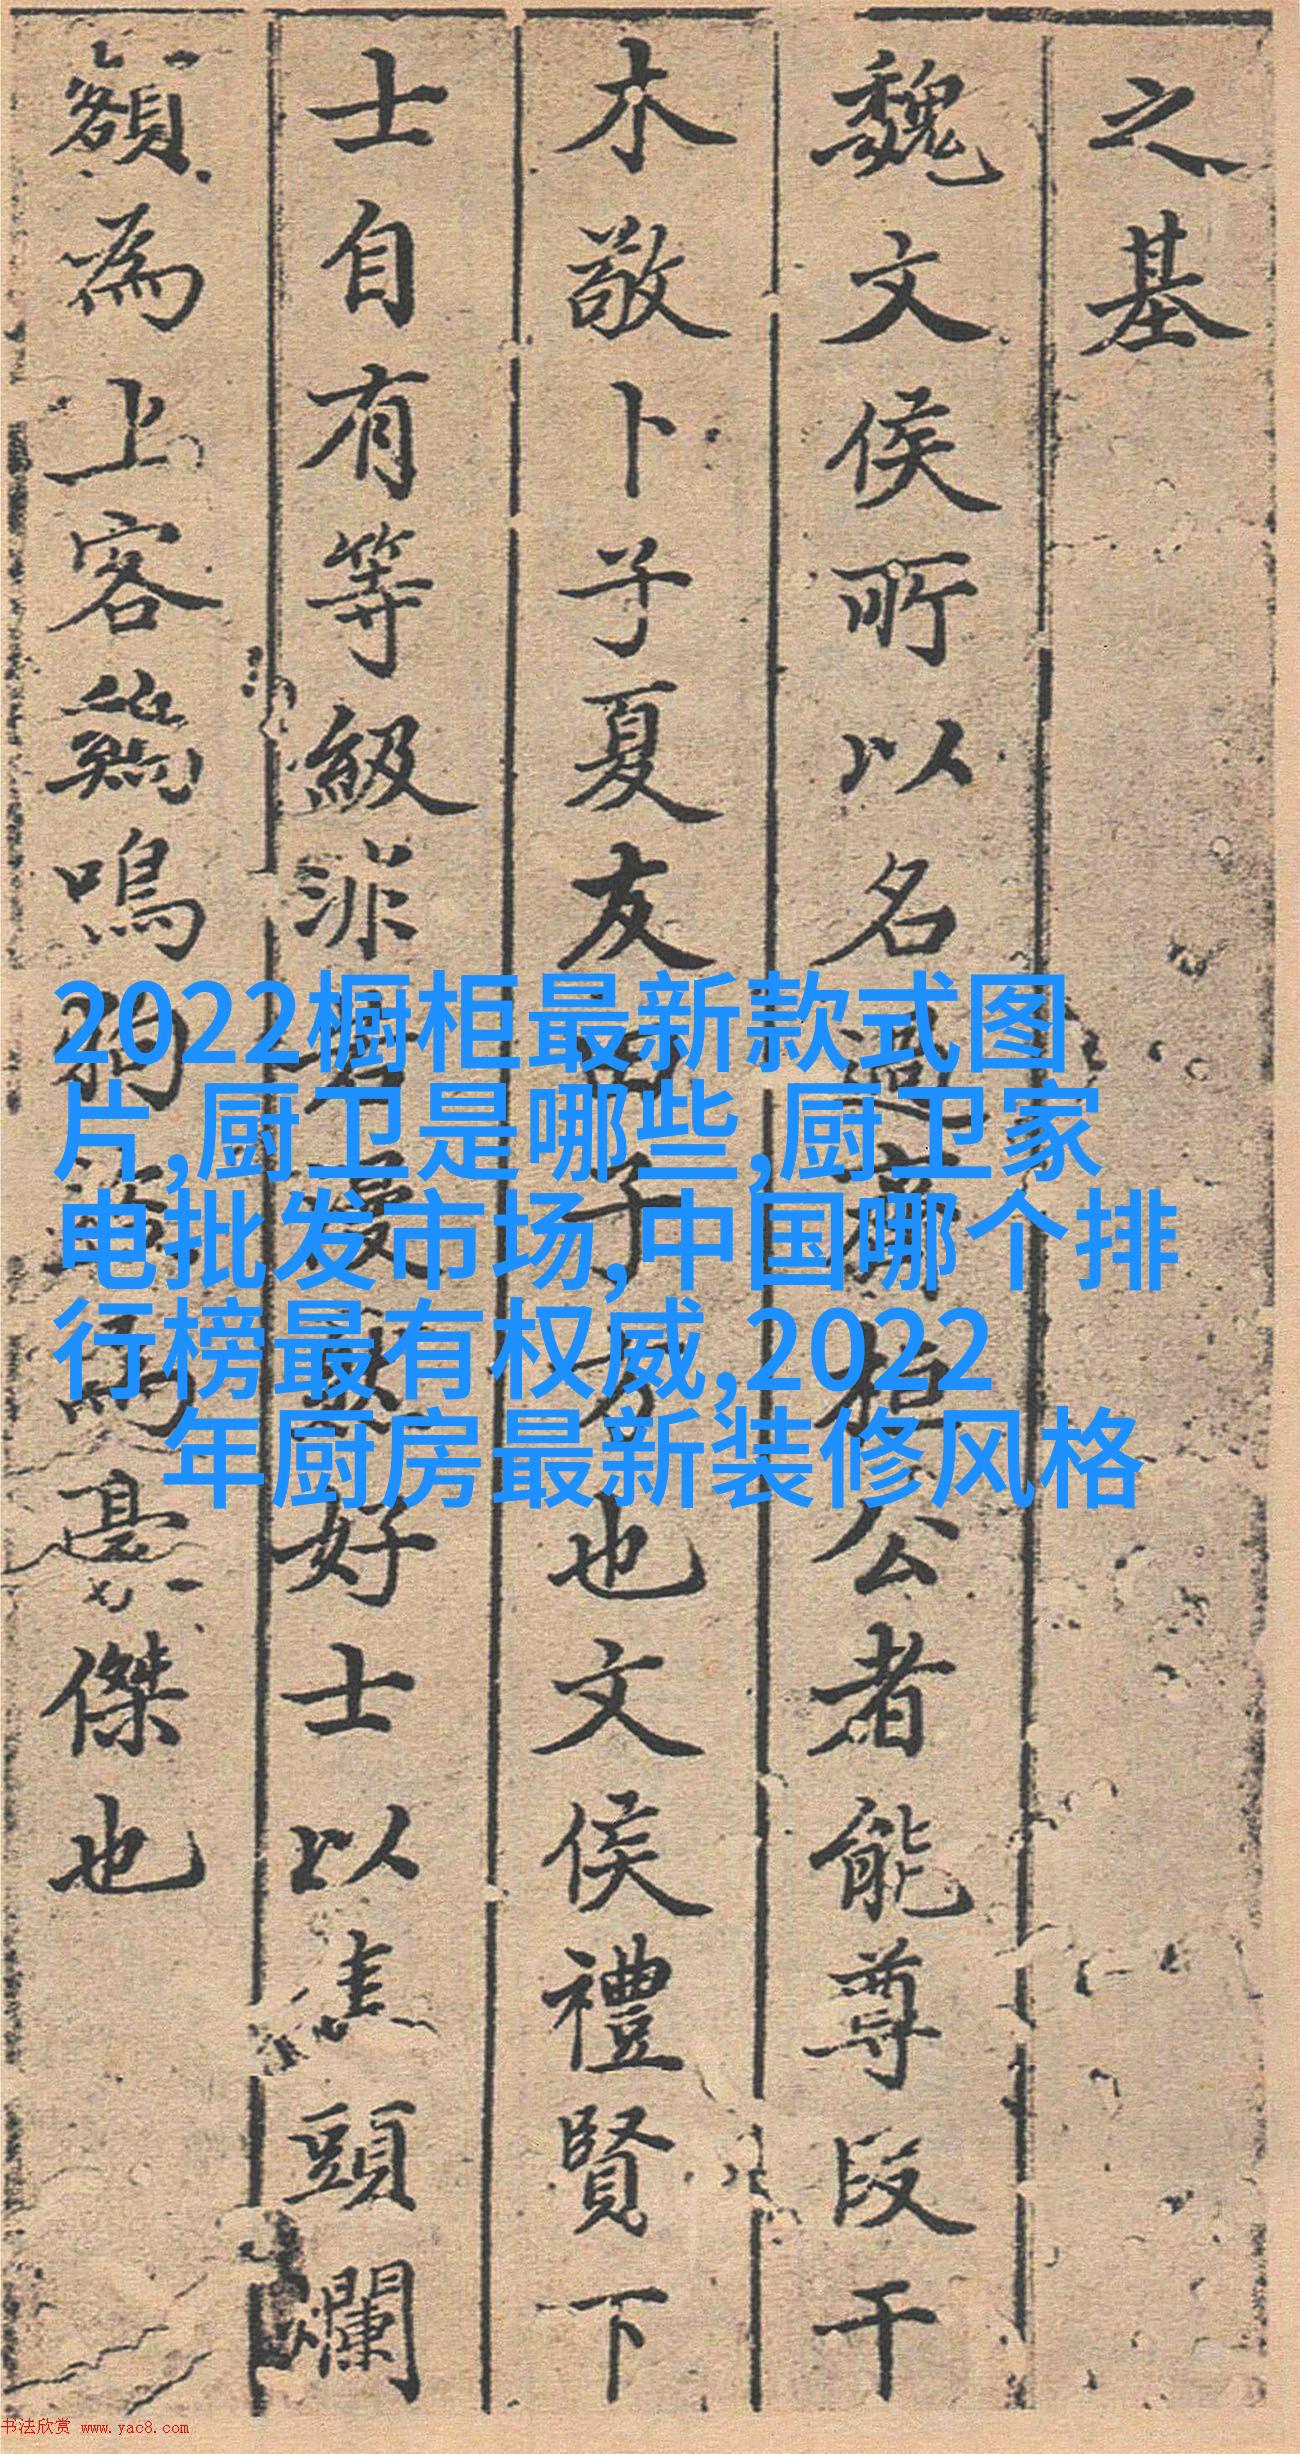 之基
魏文侯所以名過齊桓公者能尊段干
木敬卜子夏友田子方也文侯禮賢下
士自有等級非若然好士以焦頭爛
額為上客雞鳴狗盜為豪傑也
2022橱柜最新款式图
片,厨卫是哪些,厨卫家
电批发市场,中国哪个排
行榜最有权威,2022
年厨房最新装修风格
书法欣赏 www.yac8.com